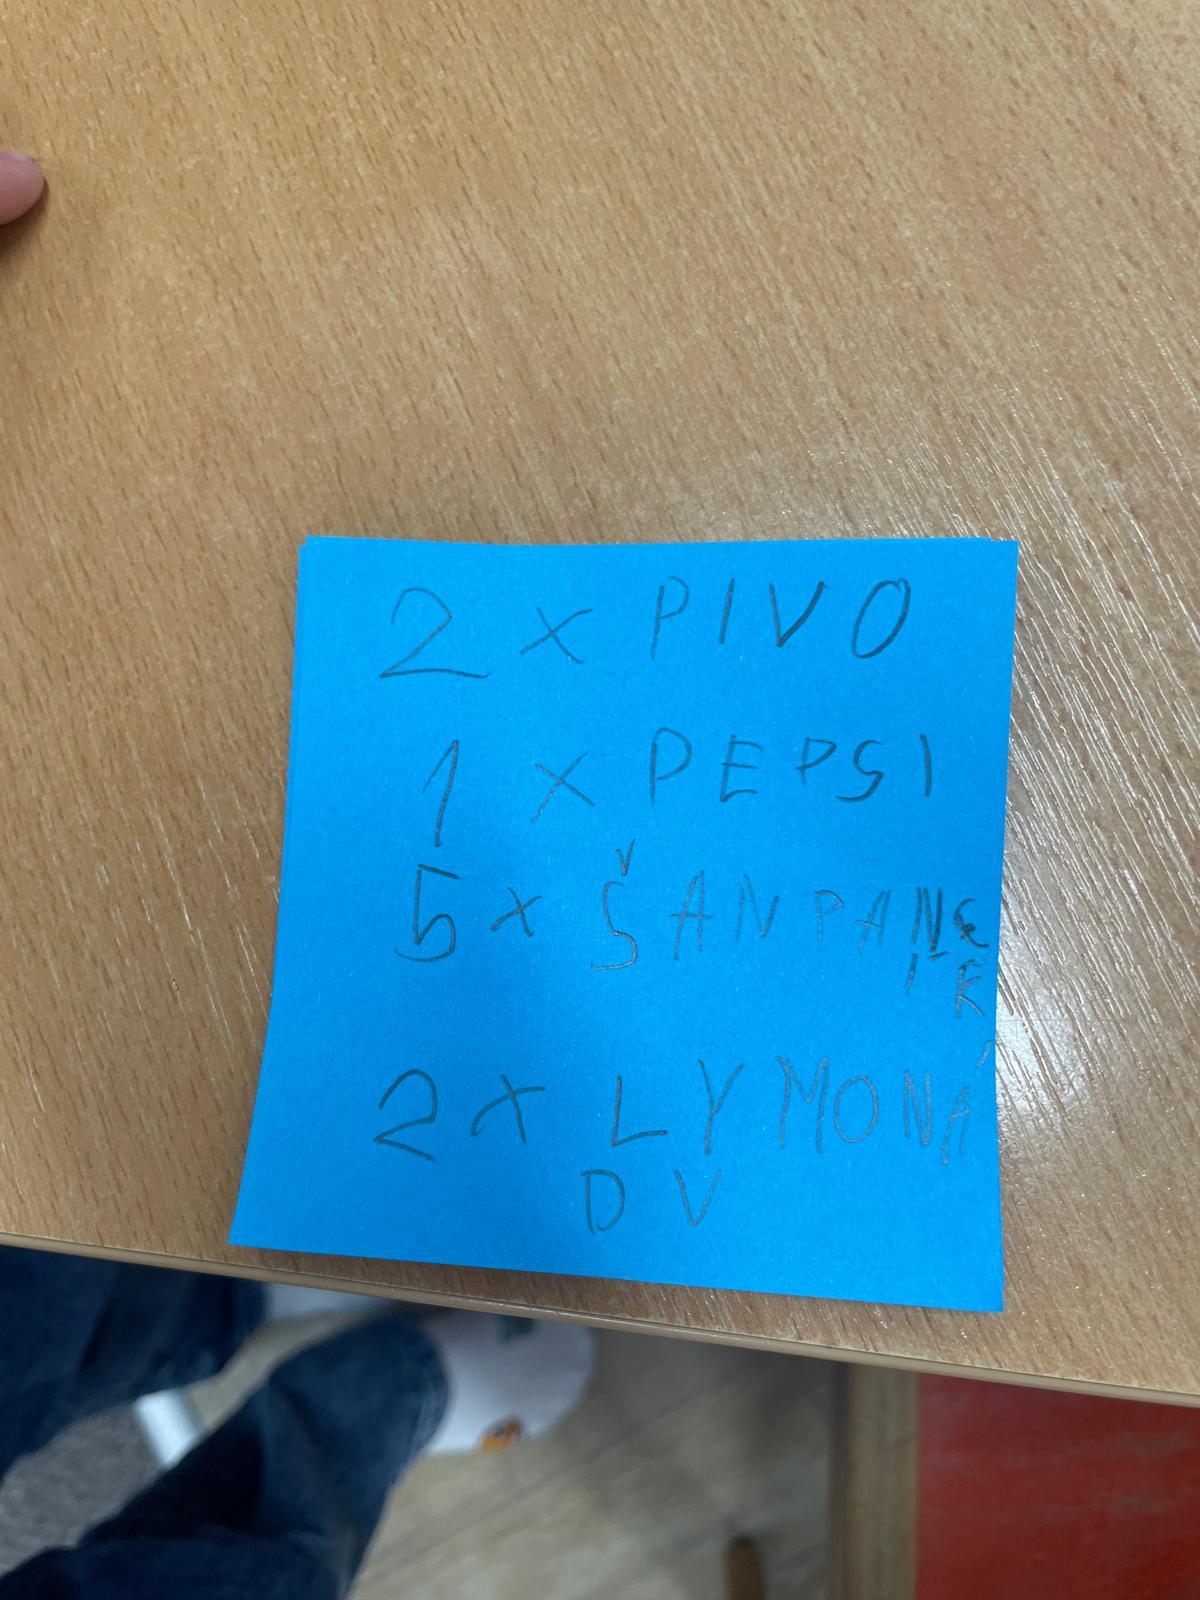 2 x PIVO
1 x PEPSI
5 x ŠANPANE
2 x LYMONÁ
DV